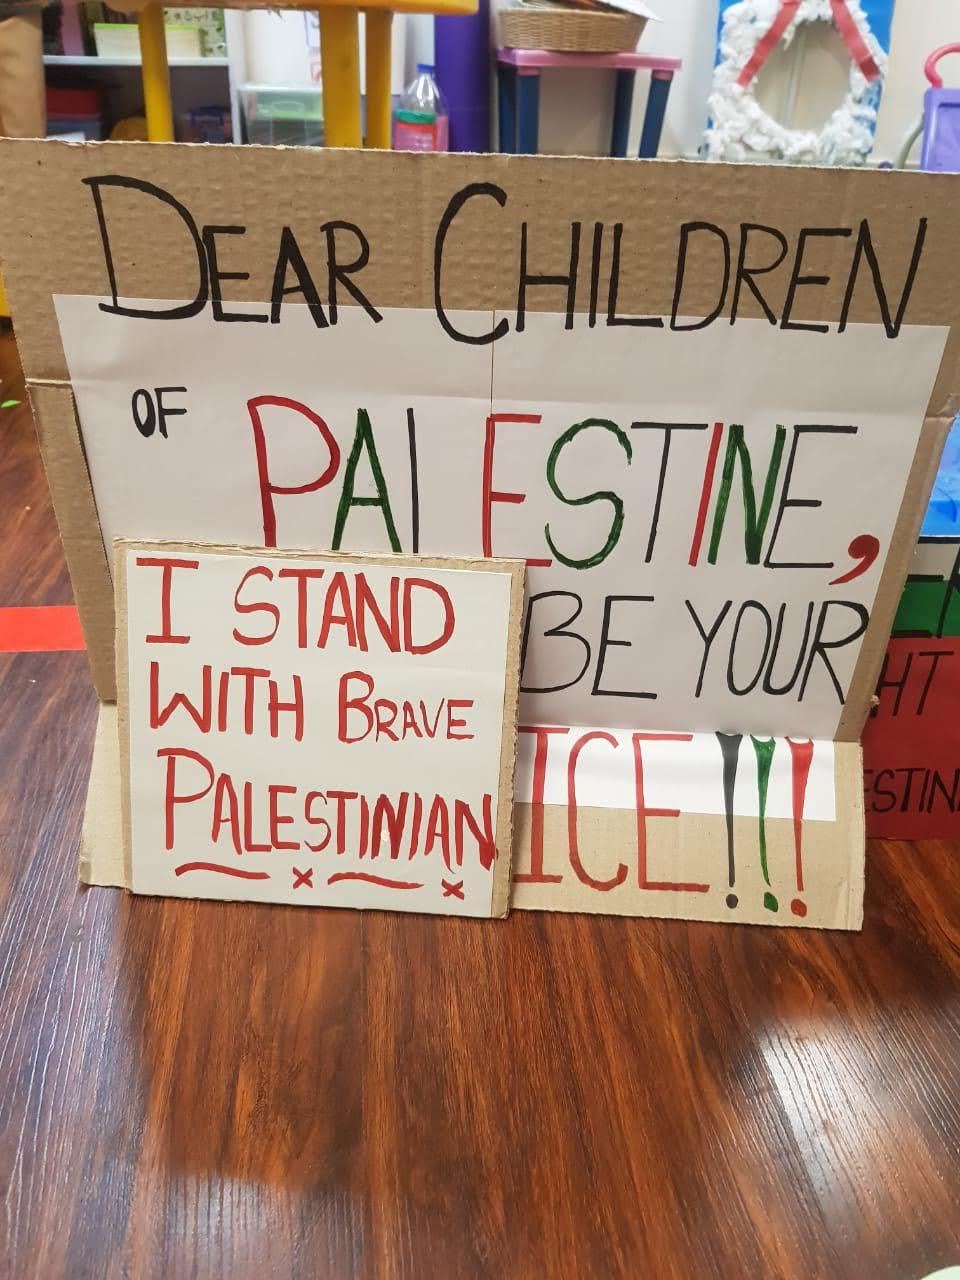 DEAR CHILDREN
OF PALESTINE,
BE YOUR
ICE!!!
I STAND
WITH BRAVE
PALESTINIAN
HT
ESTIN